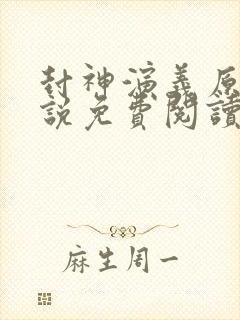 封神演義原
說免費閱讀
麻生周一